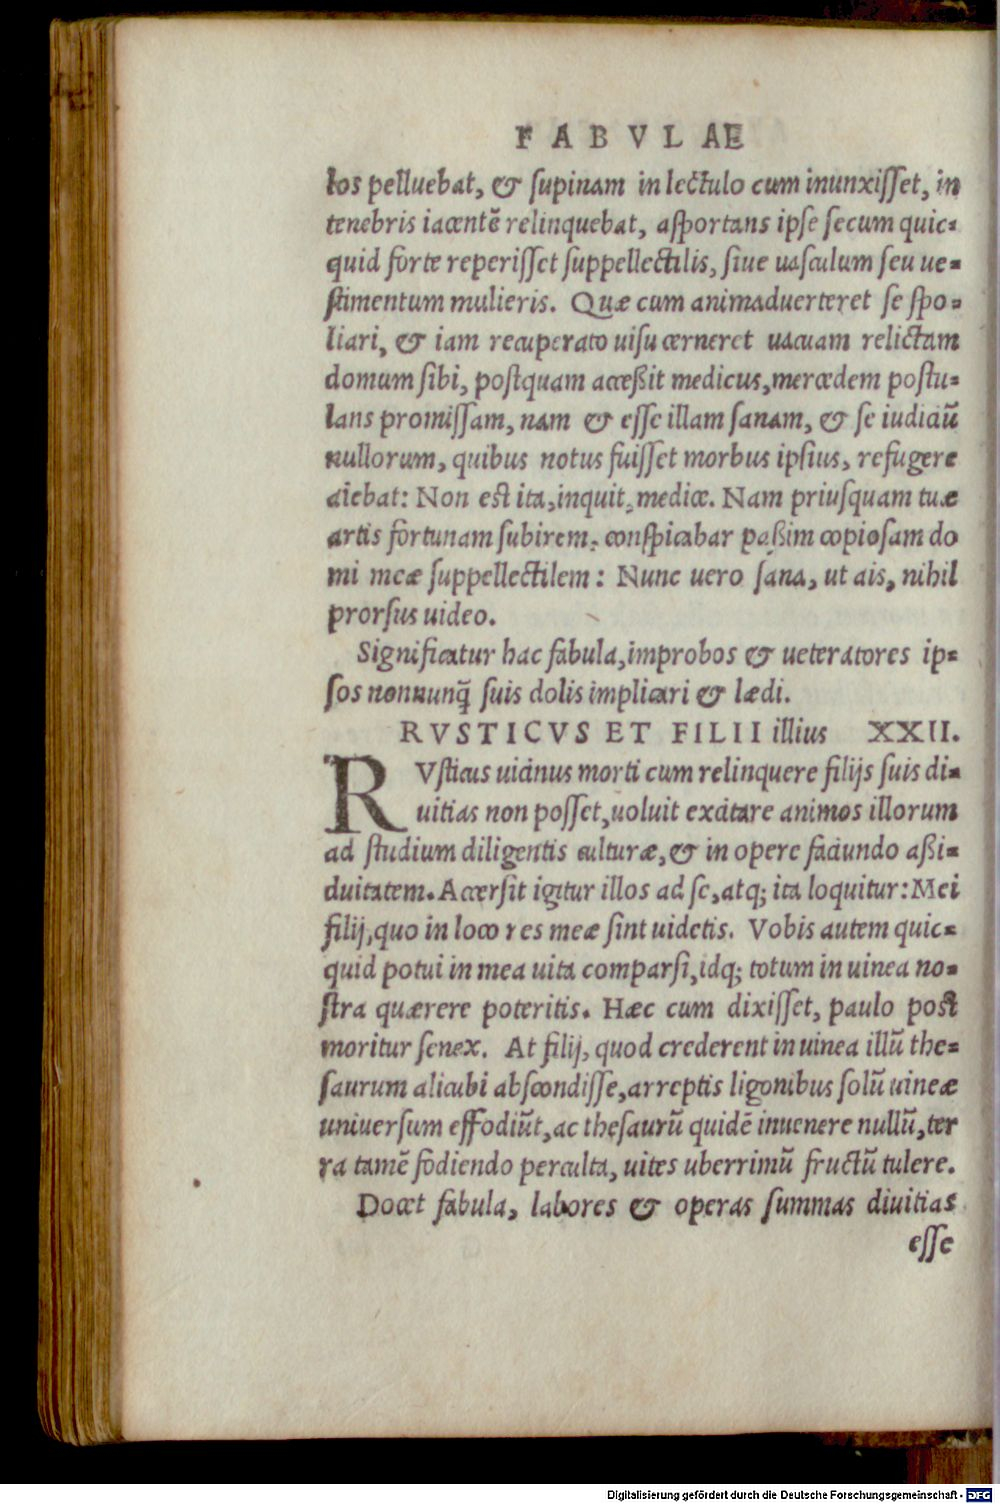 FABVLAE
los pelluebat, & supinam in lectulo cum inunxisset, in
tenebris iacentẽ relinquebat, asportans ipse secum quic-
quid forte reperisset suppellectilis, siue uasculum seu ue-
stimentum mulieris. Quæ cum animaduerteret se spo-
liari, & iam recuperato uisu cerneret uacuam relictam
domum sibi, postquam acceßit medicus, mercedem postu-
lans promissam, nam & esse illam sanam, & se iudiciũ
nullorum, quibus notus fuisset morbus ipsius, refugere
aiebat: Non est ita, inquit, medice. Nam priusquam tuæ
artis fortunam subirem, conspicabar paßim copiosam do
mi meæ suppellectilem: Nunc uero sana, ut ais, nihil
prorsus uideo.
Significatur hac fabula, improbos & ueteratores ip-
sos nonnunq̃ suis dolis implicari & lædi.
RVSTICVS ET FILII illius XXII.
RVsticus uicinus morti cum relinquere filijs suis di-
uitias non posset, uoluit excitare animos illorum
ad studium diligentis culturæ, & in opere faciundo aßi-
duitatem. Accersit igitur illos ad se, atq; ita loquitur: Mei
filij, quo in loco res meæ sint uidetis. Vobis autem quic-
quid potui in mea uita comparsi, idq; totum in uinea no-
stra quærere poteritis. Hæc cum dixisset, paulo post
moritur senex. At filij, quod crederent in uinea illũ the-
saurum alicubi abscondisse, arreptis ligonibus solũ uineæ
uniuersum effodiũt, ac thesaurũ quidẽ inuenere nullũ, ter
ra tamẽ fodiendo perculta, uites uberrimũ fructũ tulere.
Docet fabula, labores & operas summas diuitias
esse
Digitalisierung gefördert durch die Deutsche Forschungsgemeinschaft - DFG